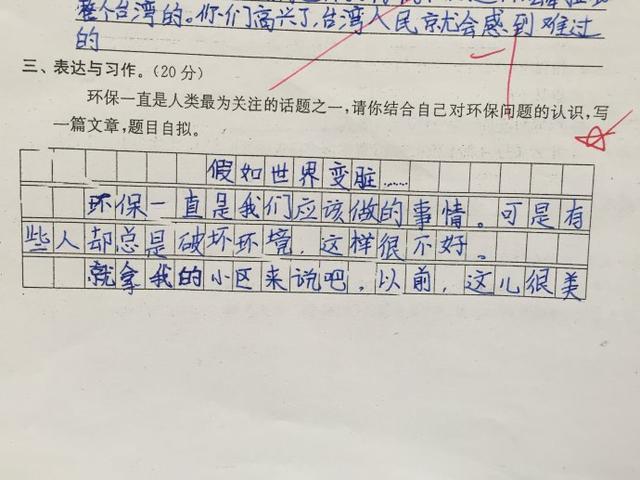 整个台湾的。你们高兴了,台湾人民就会感到难过
的
三、表达与习作。(20分)
环保一直是人类最为关注的话题之一,请你结合自己对环保问题的认识,写
一篇文章,题目自拟。
假如世界变脏……
环保一直是我们应该做的事情。可是有
些人却总是破坏环境,这样很不好。
就拿我的小区来说吧,以前,这儿很美